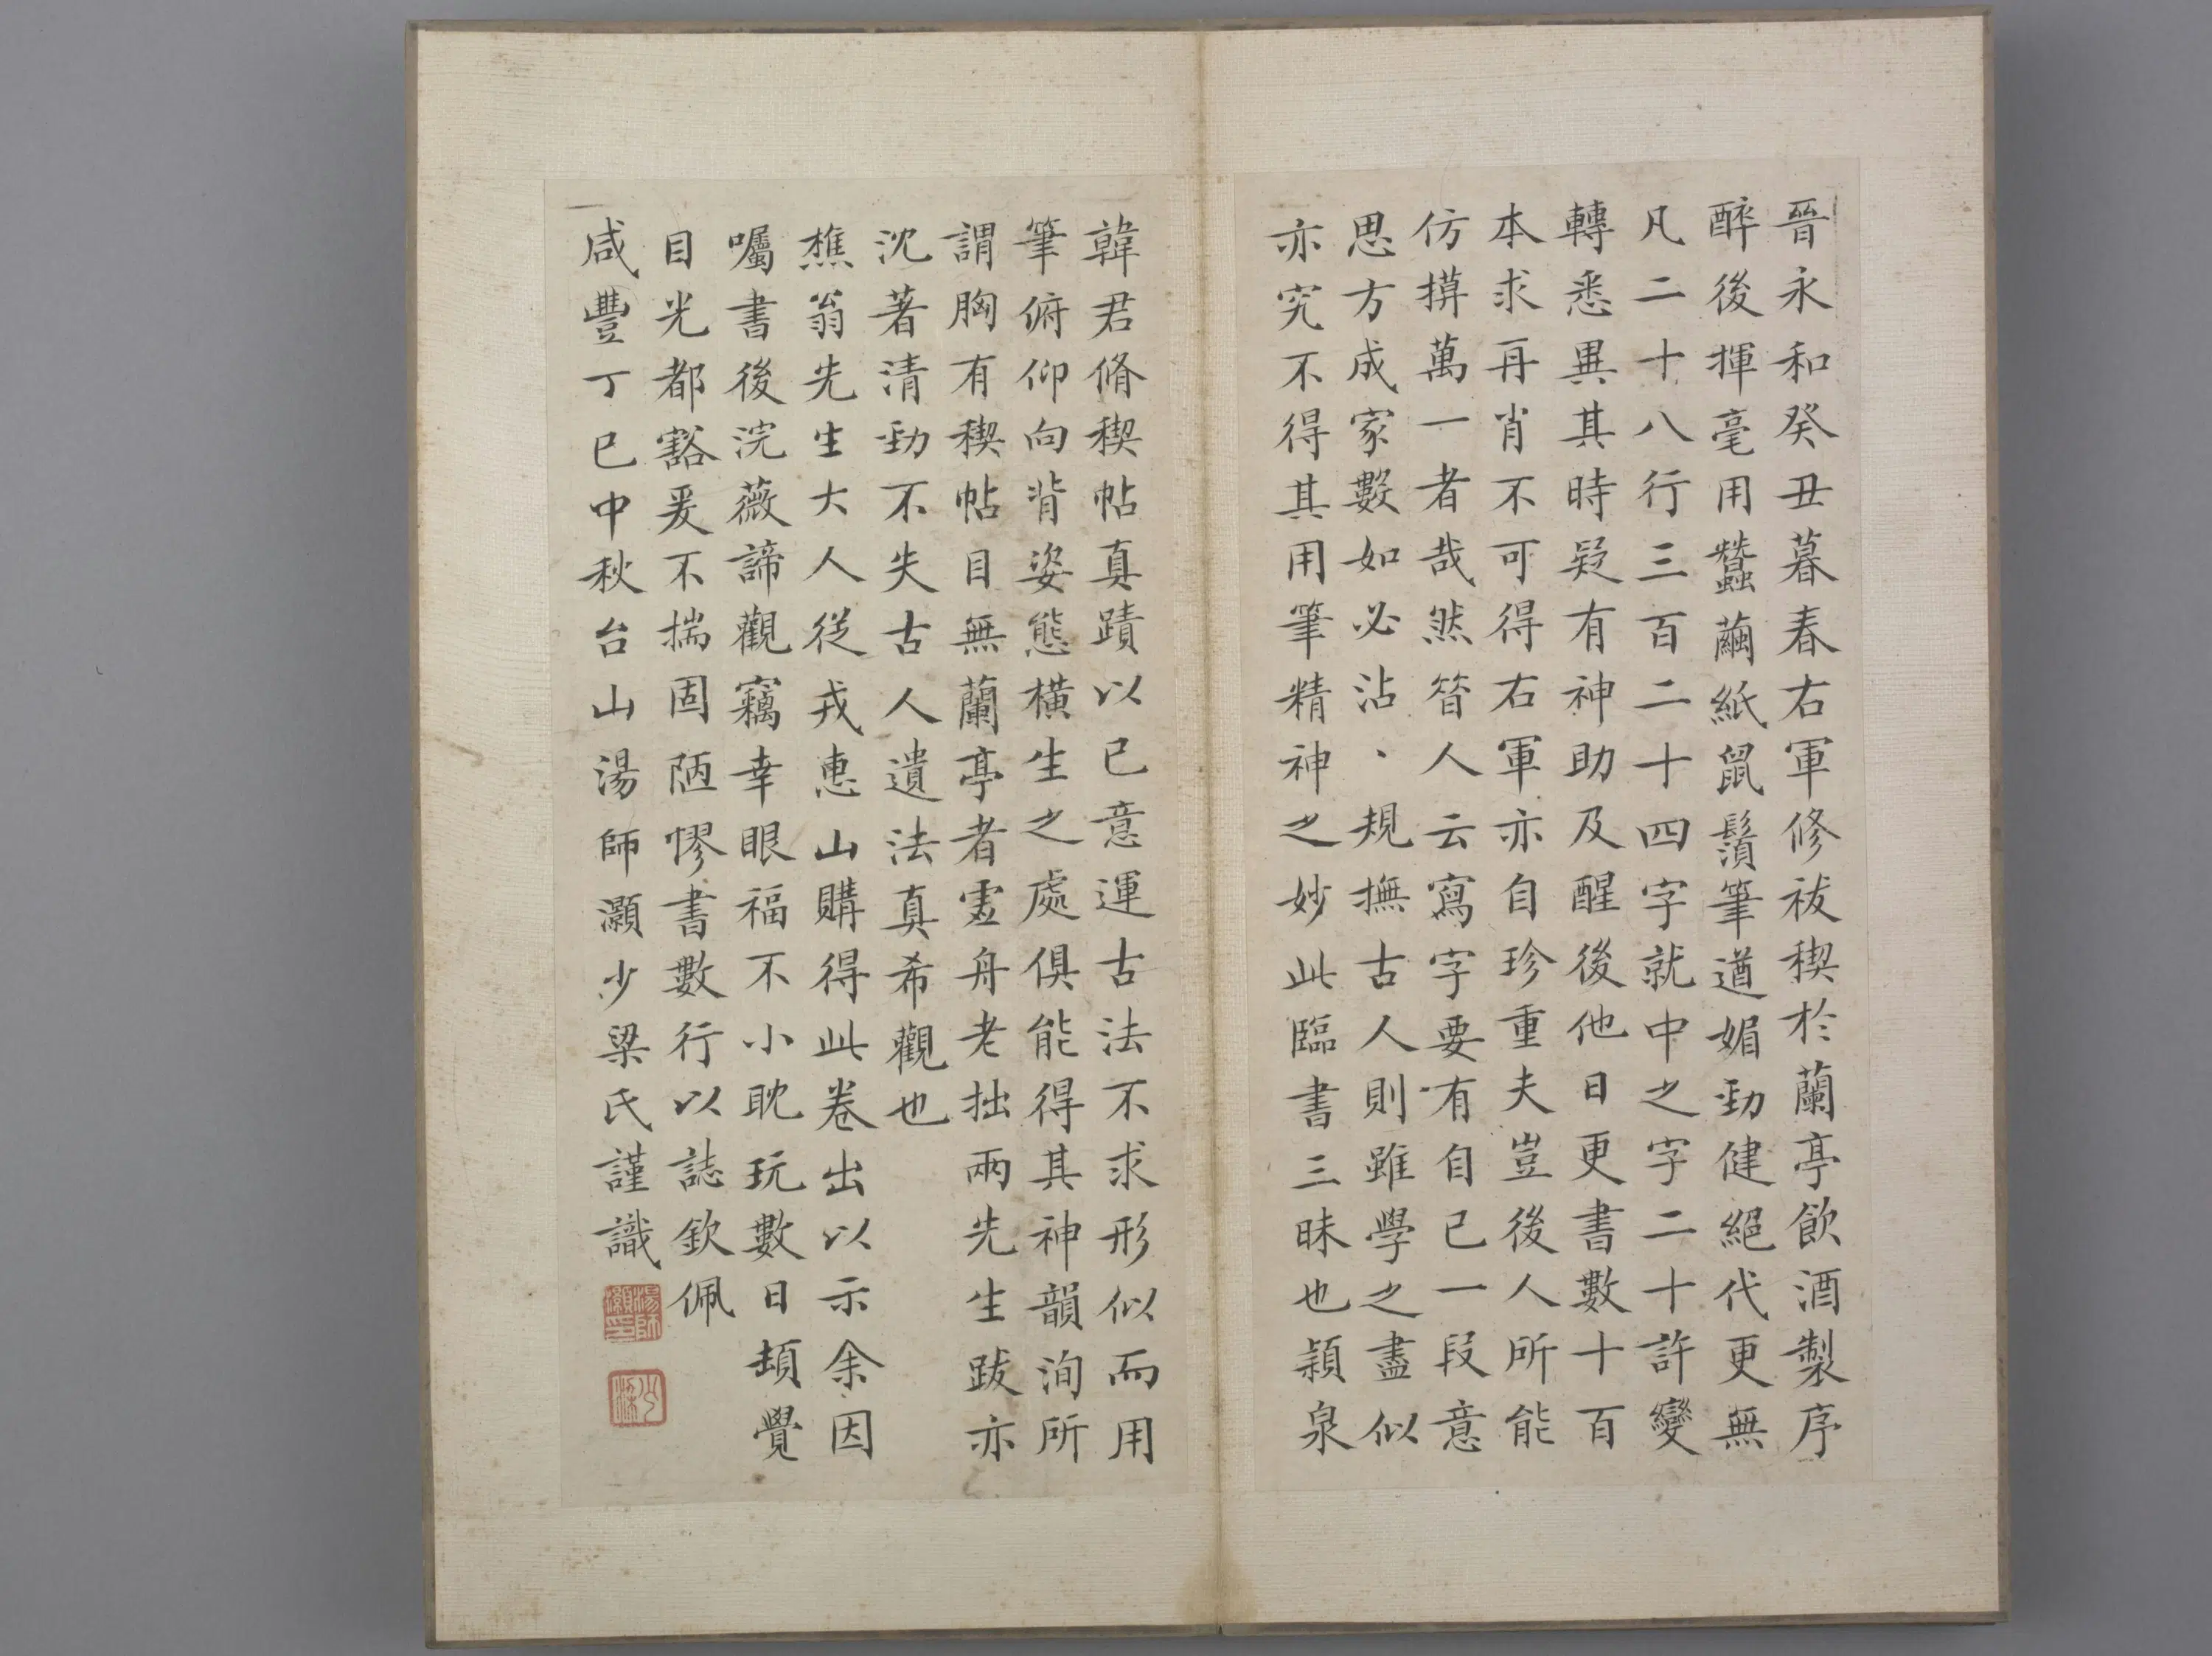 晉永和癸丑暮春右軍修祓禊於蘭亭飲酒製序
醉後揮毫用蠶繭紙鼠鬚筆遒媚勁健絕代更無
凡二十八行三百二十四字就中之字二十許變
轉悉異其時疑有神助及醒後他日更書數十百
本求再肖不可得右軍亦自珍重夫豈後人所能
仿摹萬一者哉然昔人云寫字要有自己一段意
思方成家數如必沾、規撫古人則雖學之盡似
亦究不得其用筆精神之妙此臨書三昧也穎泉
韓君脩禊帖真蹟以已意運古法不求形似而用
筆俯仰向背姿態橫生之處俱能得其神韻洵所
謂胸有稧帖目無蘭亭者虛舟老拙兩先生跋亦
沈著清勁不失古人遺法真希觀也
樵翁先生大人從戎惠山購得此卷出以示余因
囑書後浣薇諦觀竊幸眼福不小耽玩數日頓覺
目光都豁爰不揣固陋憀書數行以誌欽佩
咸豐丁巳中秋台山湯師灝少梁氏謹識
湯師灝印
少梁